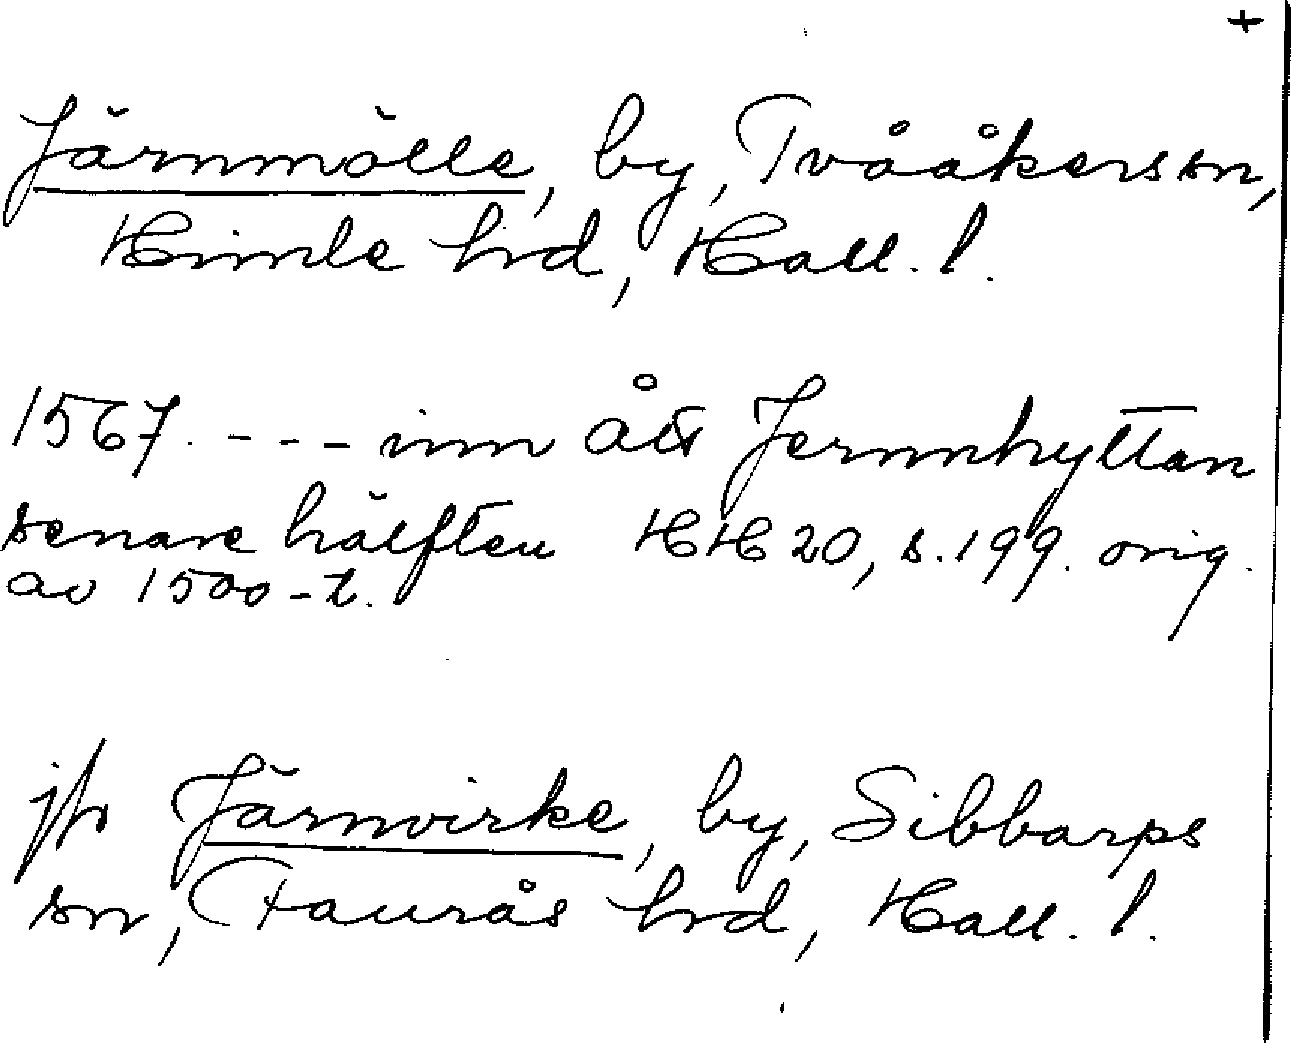 +
Järnmölle, by, Tvååkers sn,
Himle hd, Hall. l.
1567. - - - inn ått Jernnhyttan
senare hälften HH 20, s. 199. orig.
av 1500-t.
jfr Järnvirke, by, Sibbarps
sn, Faurås hd, Hall. l.